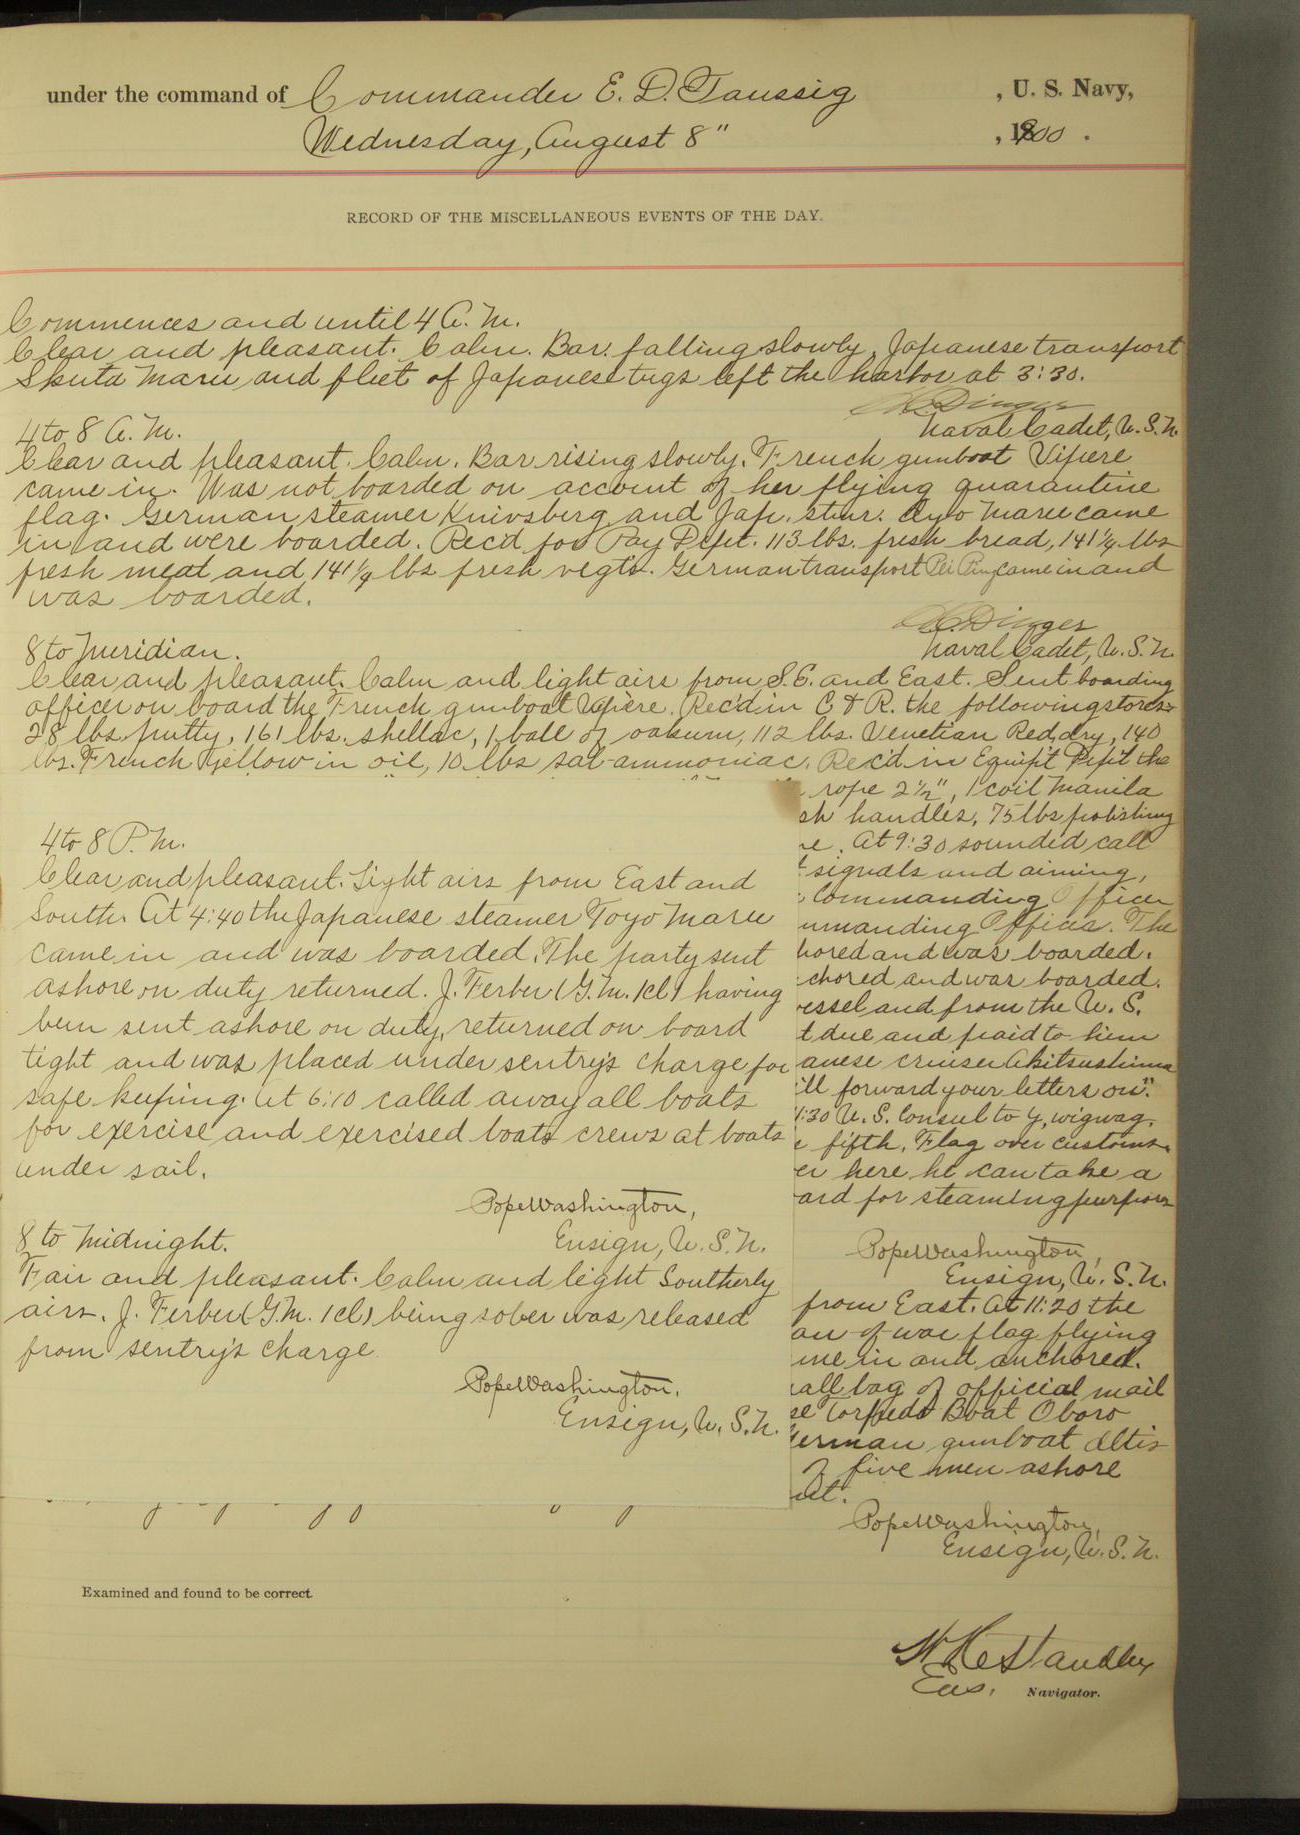 under the command of Commander E. D. Taussig , U. S. Navy,
Wednesday, August 8" , 1900 .
RECORD OF THE MISCELLANEOUS EVENTS OF THE DAY.
Commences and until 4 A. M.
Clear and pleasant. Calm. Bar. falling slowly. Japanese transport
Maru and fleet of Japanese tugs left the harbor at 3:30.
Dinger
Naval Cadet, U. S. N.
4 to 8 A. M.
Clear and pleasant. Calm. Bar rising slowly. French gunboat Vipere
came in. Was not boarded on account of her flying quarantine
flag. German steamer Knivsberg and Jap. stmr. Maru came
in and were boarded. Rec'd for Pay Dept. 113 lbs. fresh bread, 141 1/4 lbs
fresh meat and 141 1/4 lbs fresh vegts. German transport came in and
was boarded.
Dinger
Naval Cadet, U. S. N.
8 to Meridian.
Clear and pleasant. Calm and light airs from S. E. and East. Sent boarding
officer on board the French gunboat Vipère. Rec'd in C & R. the following stores:
28 lbs. putty, 161 lbs. shellac, 1 bale of oakum, 112 lbs. Venetian Red, dry, 140
lbs. French Yellow in oil, 10 lbs sal-ammoniac. Rec'd in Equip't Dep't the
rope 2 1/2", 1 coil Manila
sh handles, 75 lbs polishing
e. At 9:30 sounded call
signals and aiming,
Commanding Officer
mmanding Officer. The
hored and was boarded.
chored and was boarded.
vessel and from the U. S.
t due and paid to him
anese cruiser Akitsushima
ill forward your letters on".
1:30 U. S. Consul to Y, wigwag.
e fifth. Flag over customs
er here he can take a
ard for steaming purposes
Pope Washington,
Ensign, U. S. N.
from East. At 11:20 the
an-of-war flag flying
me in and anchored.
all bag of official mail
se Torpedo Boat Oboro
German gunboat Iltis
of five men ashore
ut.
Pope Washington,
Ensign, U. S. N.
4 to 8 P. M.
Clear and pleasant. Light airs from East and
South. At 4:40 the Japanese steamer Toyo Maru
came in and was boarded. The party sent
ashore on duty returned. J. Ferber (G.M. 1cl) having
been sent ashore on duty, returned on board
tight and was placed under sentry's charge for
safe keeping. At 6:10 called away all boats
for exercise and exercised boats crews at boats
under sail.
Pope Washington,
Ensign, U. S. N.
8 to Midnight.
Fair and pleasant. Calm and light Southerly
airs. J. Ferber (G.M. 1cl) being sober was released
from sentry's charge
Pope Washington,
Ensign, U. S. N.
Examined and found to be correct.
Standley
Ens. Navigator.